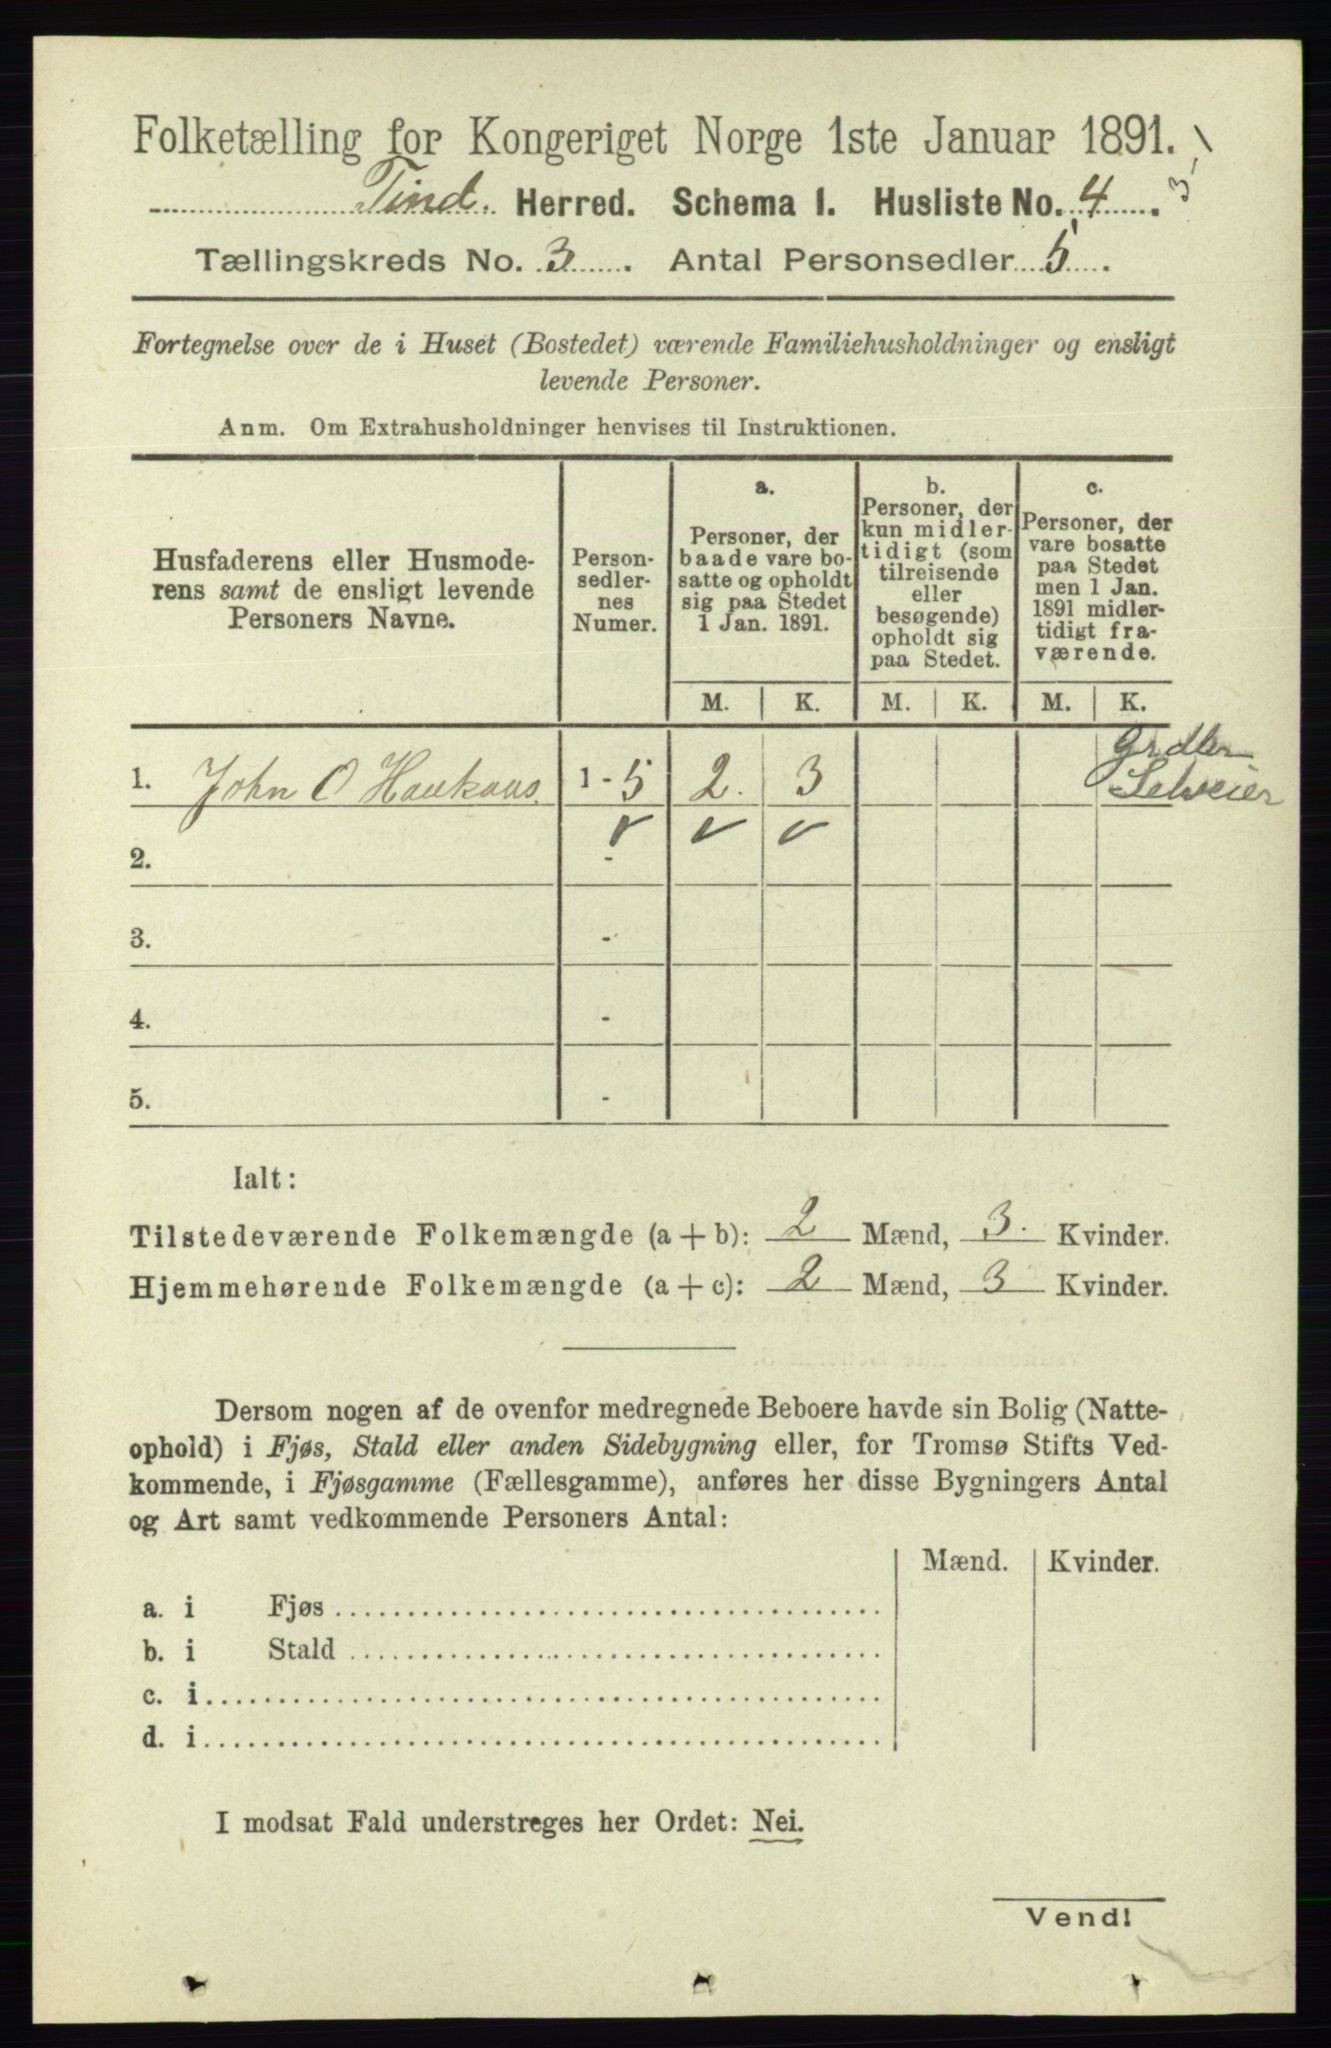 Folketælling for Kongeriget Norge 1ste Januar 1891.
Tind. Herred. Schema 1. Husliste No. 4.
3
Tællingskreds No. 3. Antal Personsedler 5.
Fortegnelse over de i Huset (Bostedet) værende Familiehusholdninger og ensligt
levende Personer.
Anm. Om Extrahusholdninger henvises til Instruktionen.
Husfaderens eller Husmode-
rens samt de ensligt levende
Personers Navne.
Person-
sedler-
nes
Numer.
a.
Personer, der
baade vare bo-
satte og opholdt
sig paa Stedet
1 Jan. 1891.
b.
Personer, der
kun midler-
tidigt (som
tilreisende
eller
besøgende)
opholdt sig
paa Stedet.
c.
Personer, der
vare bosatte
paa Stedet
men 1 Jan.
1891 midler-
tidigt fra-
værende.
M. K. M. K. M. K.
1. John O Haukaas. 1 - 5 2. 3
Selveier
2. -
3. -
4. -
5. -
Ialt:
Tilstedeværende Folkemængde (a + b): 2 Mænd, 3. Kvinder.
Hjemmehørende Folkemængde (a + c): 2 Mænd, 3 Kvinder.
Dersom nogen af de ovenfor medregnede Beboere havde sin Bolig (Natte-
ophold) i Fjøs, Stald eller anden Sidebygning eller, for Tromsø Stifts Ved-
kommende, i Fjøsgamme (Fællesgamme), anføres her disse Bygningers Antal
og Art samt vedkommende Personers Antal:
Mænd. Kvinder.
a. i Fjøs
b. i Stald
c. i
d. i
I modsat Fald understreges her Ordet: Nei.
Vend!